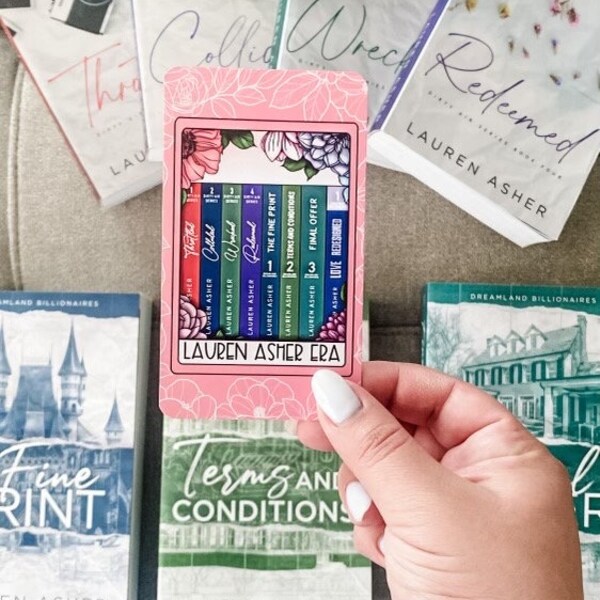 Thro
LAU
Collic
Wreck
DIRTY AIR
Redeemed
DIRTY AIR SERIES BOOK FOUR
LAUREN ASHER
1
2
3
4
Throttled
Collided
Wrecked
Redeemed
ASHER
LAUREN ASHER
LAUREN ASHER
LAUREN ASHER
THE FINE PRINT
1
LAUREN ASHER
TERMS AND CONDITIONS
2
LAUREN ASHER
FINAL OFFER
3
LAUREN ASHER
1
LOVE REDESIGNED
ASHER
LAUREN ASHER ERA
AMLAND BILLIONAIRES
Fine
RINT
EN ASHER
Terms AND
CONDITIONS
DREAMLAND BILLIONAIRES